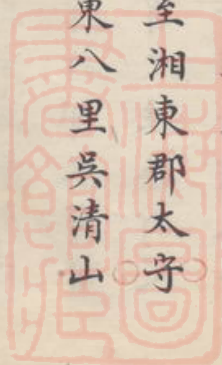 至湘東郡太守
東八里吳清山